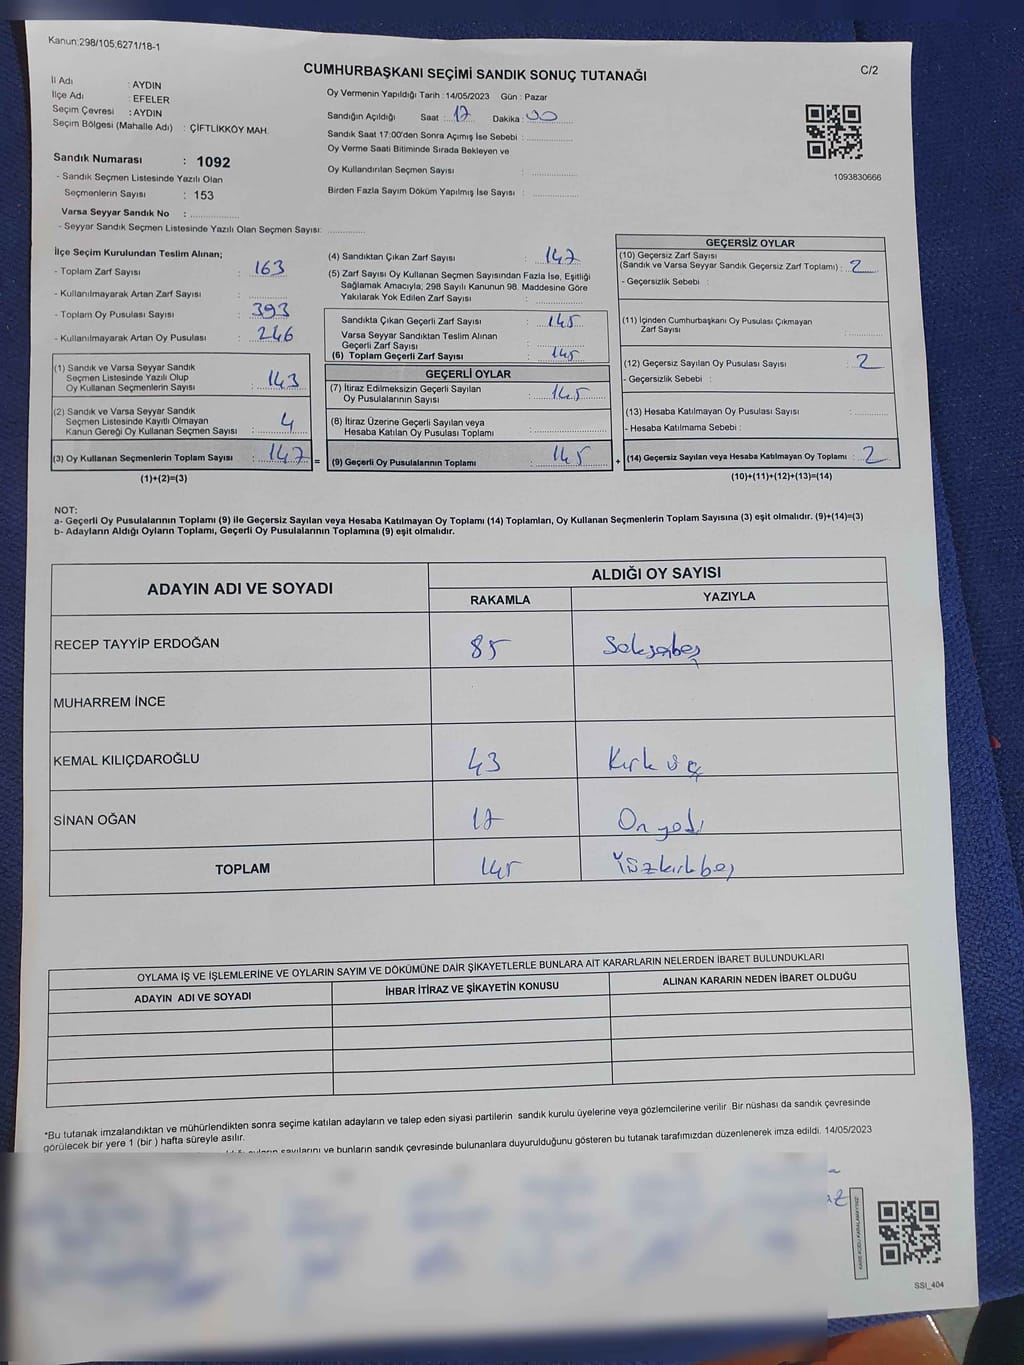 Kanun:298/105;6271/18-1
CUMHURBAŞKANI SEÇİMİ SANDIK SONUÇ TUTANAĞI
C/2
İl Adı : AYDIN
İlçe Adı : EFELER
Seçim Çevresi : AYDIN
Seçim Bölgesi (Mahalle Adı) : ÇİFTLİKKÖY MAH.
Sandık Numarası : 1092
- Sandık Seçmen Listesinde Yazılı Olan
Seçmenlerin Sayısı : 153
Varsa Seyyar Sandık No :
- Seyyar Sandık Seçmen Listesinde Yazılı Olan Seçmen Sayısı:
Oy Vermenin Yapıldığı Tarih : 14/05/2023 Gün : Pazar
Sandığın Açıldığı Saat : 17 Dakika : 00
Sandık Saat 17:00'den Sonra Açımış İse Sebebi :
Oy Verme Saati Bitiminde Sırada Bekleyen ve
Oy Kullandırılan Seçmen Sayısı :
Birden Fazla Sayım Döküm Yapılmış İse Sayısı :
1093830666
İlçe Seçim Kurulundan Teslim Alınan;
- Toplam Zarf Sayısı : 163
- Kullanılmayarak Artan Zarf Sayısı :
- Toplam Oy Pusulası Sayısı : 393
- Kullanılmayarak Artan Oy Pusulası : 246
(1) Sandık ve Varsa Seyyar Sandık
Seçmen Listesinde Yazılı Olup
Oy Kullanan Seçmenlerin Sayısı : 143
(2) Sandık ve Varsa Seyyar Sandık
Seçmen Listesinde Kayıtlı Olmayan
Kanun Gereği Oy Kullanan Seçmen Sayısı : 4
(3) Oy Kullanan Seçmenlerin Toplam Sayısı : 147 =
(1)+(2)=(3)
(4) Sandıktan Çıkan Zarf Sayısı : 147
(5) Zarf Sayısı Oy Kullanan Seçmen Sayısından Fazla İse, Eşitliği
Sağlamak Amacıyla; 298 Sayılı Kanunun 98. Maddesine Göre
Yakılarak Yok Edilen Zarf Sayısı :
Sandıkta Çıkan Geçerli Zarf Sayısı : 145
Varsa Seyyar Sandıktan Teslim Alınan
Geçerli Zarf Sayısı :
(6) Toplam Geçerli Zarf Sayısı : 145
GEÇERLİ OYLAR
(7) İtiraz Edilmeksizin Geçerli Sayılan
Oy Pusulalarının Sayısı : 145
(8) İtiraz Üzerine Geçerli Sayılan veya
Hesaba Katılan Oy Pusulası Toplamı :
(9) Geçerli Oy Pusulalarının Toplamı : 145 +
GEÇERSİZ OYLAR
(10) Geçersiz Zarf Sayısı
(Sandık ve Varsa Seyyar Sandık Geçersiz Zarf Toplamı) : 2
- Geçersizlik Sebebi :
(11) İçinden Cumhurbaşkanı Oy Pusulası Çıkmayan
Zarf Sayısı :
(12) Geçersiz Sayılan Oy Pusulası Sayısı : 2
- Geçersizlik Sebebi :
(13) Hesaba Katılmayan Oy Pusulası Sayısı :
- Hesaba Katılmama Sebebi :
(14) Geçersiz Sayılan veya Hesaba Katılmayan Oy Toplamı : 2
(10)+(11)+(12)+(13)=(14)
NOT:
a- Geçerli Oy Pusulalarının Toplamı (9) ile Geçersiz Sayılan veya Hesaba Katılmayan Oy Toplamı (14) Toplamları, Oy Kullanan Seçmenlerin Toplam Sayısına (3) eşit olmalıdır. (9)+(14)=(3)
b- Adayların Aldığı Oyların Toplamı, Geçerli Oy Pusulalarının Toplamına (9) eşit olmalıdır.
ADAYIN ADI VE SOYADI ALDIĞI OY SAYISI
RAKAMLA YAZIYLA
RECEP TAYYİP ERDOĞAN 85 Seksenbeş
MUHARREM İNCE
KEMAL KILIÇDAROĞLU 43 Kırk üç
SİNAN OĞAN 17 On yedi
TOPLAM 145 Yüzkırkbeş
OYLAMA İŞ VE İŞLEMLERİNE VE OYLARIN SAYIM VE DÖKÜMÜNE DAİR ŞİKAYETLERLE BUNLARA AİT KARARLARIN NELERDEN İBARET BULUNDUKLARI
ADAYIN ADI VE SOYADI İHBAR İTİRAZ VE ŞİKAYETİN KONUSU ALINAN KARARIN NEDEN İBARET OLDUĞU
*Bu tutanak imzalandıktan ve mühürlendikten sonra seçime katılan adayların ve talep eden siyasi partilerin sandık kurulu üyelerine veya gözlemcilerine verilir. Bir nüshası da sandık çevresinde
görülecek bir yere 1 (bir) hafta süreyle asılır.
sayılarını ve bunların sandık çevresinde bulunanlara duyurulduğunu gösteren bu tutanak tarafımızdan düzenlenerek imza edildi. 14/05/2023
KARE KODU KARALAMAYINIZ
SSI_404